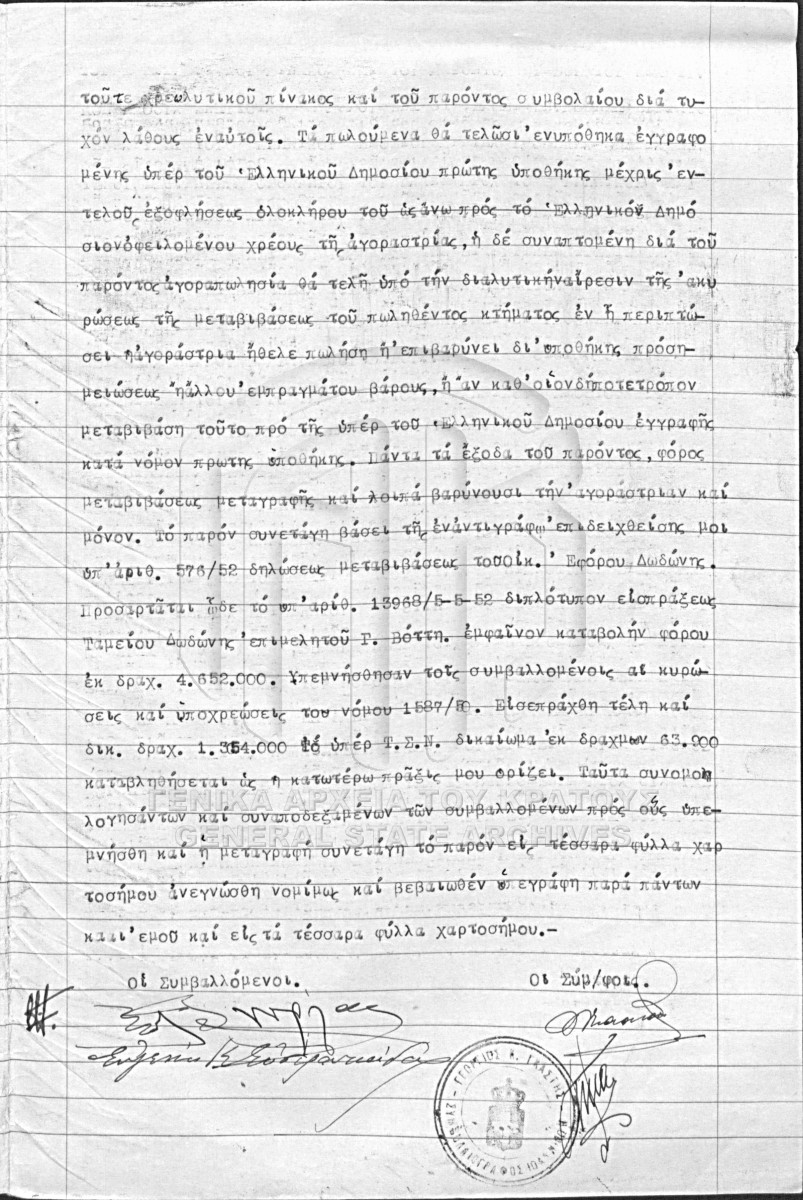 τοῦτε χρεωλυτικοῦ πίνακος καί τοῦ παρόντος συμβολαίου διά τυ-
χόν λάθους ἐναὐτοῖς. Τά πωλούμενα θά τελῶσι ἐνυπόθηκα ἐγγραφο
μένης ὑπέρ τοῦ Ἑλληνικοῦ Δημοσίου πρώτης ὑποθήκης μέχρις ἐν-
τελοῦς ἐξοφλήσεως ὁλοκλήρου τοῦ ὡς ἄνω πρός τό Ἑλληνικόν Δημό
σιονὀφειλομένου χρέους τῆς ἀγοραστρίας, ἡ δέ συναπτομένη διά τοῦ
παρόντος ἀγοραπωλησία θά τελῆ ὑπό τήν διαλυτικήναἵρεσιν τῆς ἀκυ
ρώσεως τῆς μεταβιβάσεως τοῦ πωληθέντος κτήματος ἐν ᾗ περιπτώ-
σει ἡἀγοράστρια ἤθελε πωλήση ἤ ἐπιβαρύνει δι' ὑποθήκης πρόση-
μειώσεως ἤἄλλου ἐμπραγμάτου βάρους, ἤ ἄν καθ' οἱονδήποτετρόπον
μεταβιβάση τοῦτο πρό τῆς ὑπέρ τοῦ Ἑλληνικοῦ Δημοσίου ἐγγραφῆς
κατά νόμον πρωτης ὑποθήκης. Πάντα τά ἔξοδα τοῦ παρόντος, φόρος
μεταβιβάσεως μεταγραφῆς καί λοιπά βαρύνουσι τήν ἀγοράστριαν καί
μόνον. Τό παρόν συνετάγη βάσει τῆς ἐνἀντιγράφω ἐπιδειχθείσης μοι
ὑπ' ἀριθ. 576/52 δηλώσεως μεταβιβάσεως τοῦΟἰκ. Ἐφόρου Δωδώνης.
Προσαρτᾶται ὧδε τό ὑπ' ἀρίθ. 13968/5-5-52 διπλότυπον εἰσπράξεως
Ταμείου Δωδώνης ἐπιμελητοῦ Γ. Βόττη. ἐμφαῖνον καταβολήν φόρου
ἐκ δραχ. 4.652.000. Ὑπεμνήσθησαν τοῖς συμβαλλομένοις αἱ κυρώ-
σεις καί ὑποχρεώσεις του νόμου 1587/50. Εἰσεπράχθη τέλη καί
δικ. δραχ. 1.354.000 Τό ὑπέρ Τ.Σ.Ν. δικαίωμα ἐκ δραχμων 63.000
καταβληθήσεται ὡς ἡ κατωτέρω πρᾶξις μου ὁρίζει. Ταῦτα συνομο
λογησάντων καί συναποδεξαμένων τῶν συμβαλλομένων πρός οὕς ὑπε-
μνήσθη καί ἡ μεταγραφή συνετάγη τό παρόν εἰς τέσσαρα φύλλα χαρ
τοσήμου ἀνεγνώσθη νομίμως καί βεβαιωθέν ὑπεγράφη παρά πάντων
καιι' ἐμοῦ καί εἰς τά τέσσαρα φύλλα χαρτοσήμου.-
ΓΕΝΙΚΑ ΑΡΧΕΙΑ ΤΟΥ ΚΡΑΤΟΥΣ
GENERAL STATE ARCHIVES
Οἱ Συμβαλλόμενοι. Οἱ Σύμ/φοις.
ΓΕΩΡΓΙΟΣ Κ. ΓΚΑΣΤΗΣ
ΣΥΜΒΟΛΑΙΟΓΡΑΦΟΣ ΙΩΑΝΝΙΝΩΝ